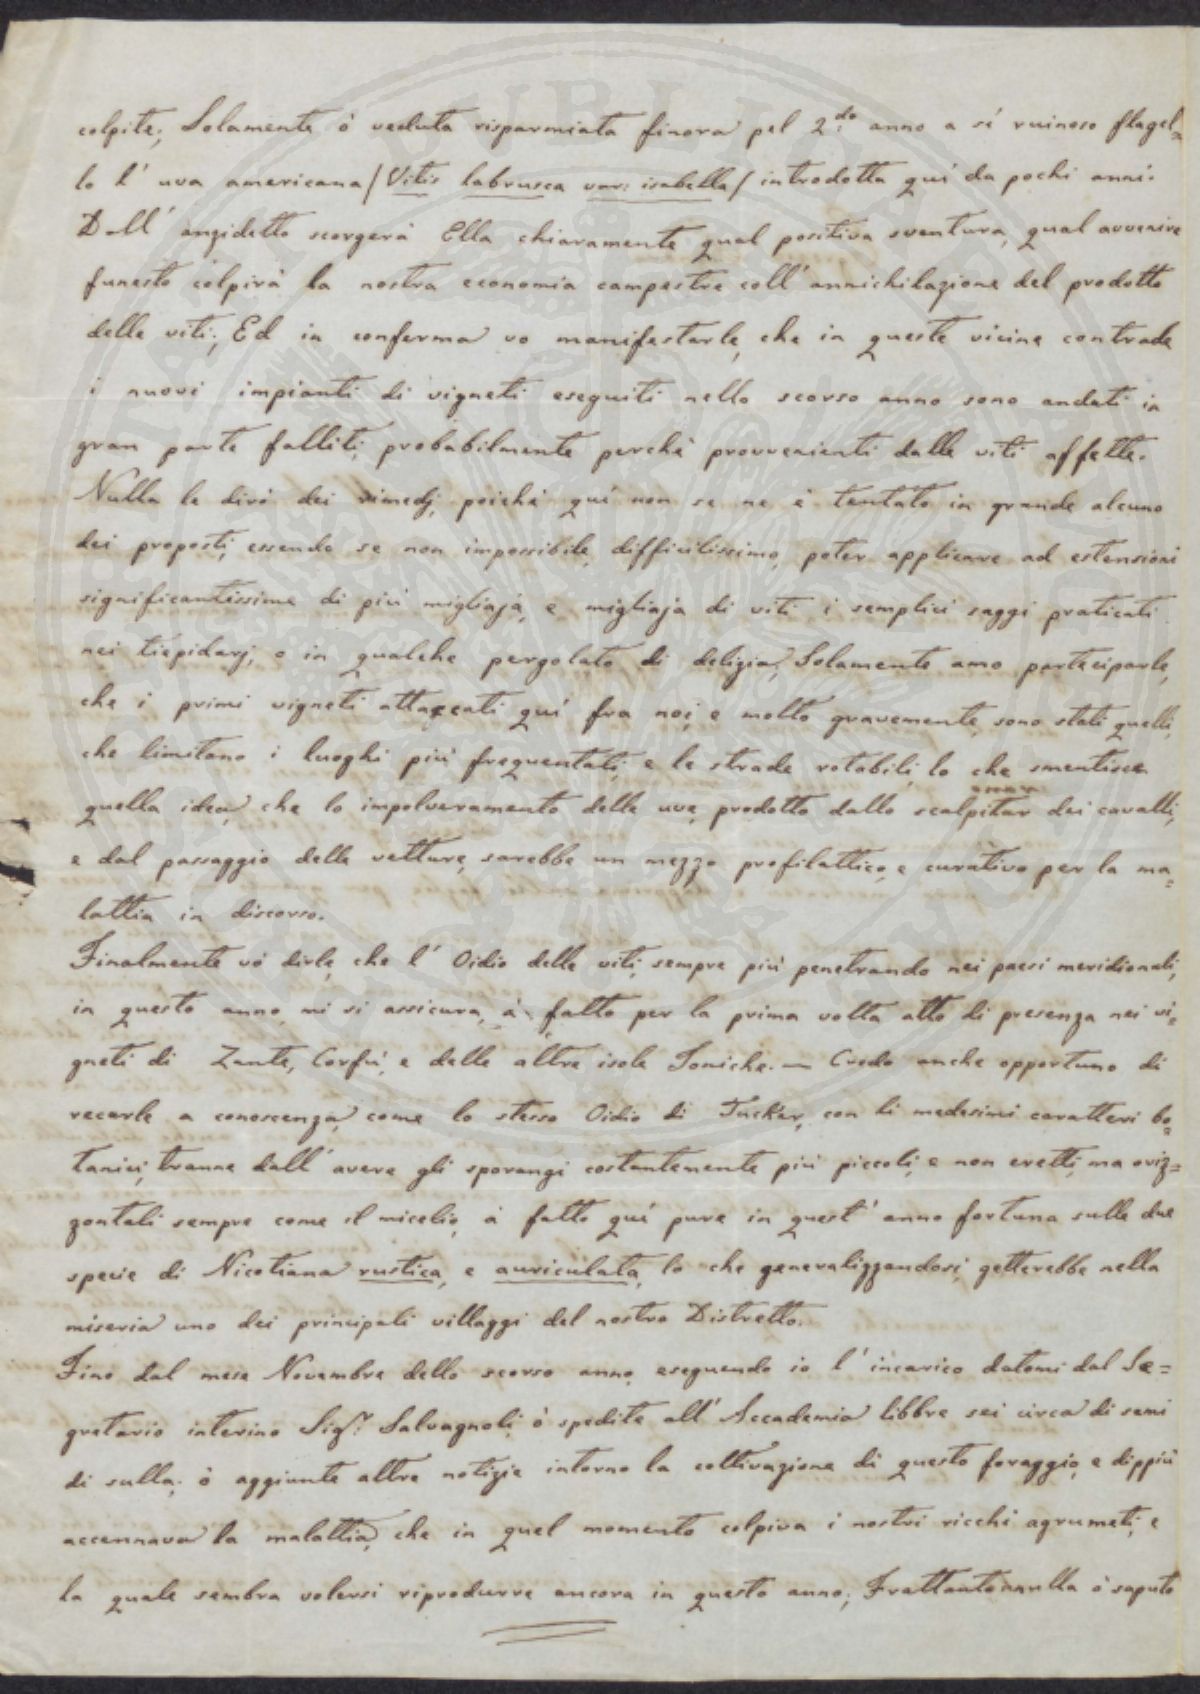 colpite; Solamente ò veduta risparmiata finora pel 2.do anno a sì ruinoso flagel=
lo l' uva americana / Vitis labrusca var: isabella / introdotta quì da pochi anni.
Dall' anzidetto scorgerà Ella chiaramente qual positiva sventura, qual avvenire
funesto colpirà la nostra economia campestre coll' annichilazione del prodotto
delle viti; Ed in conferma vo manifestarle, che in queste vicine contrade
i nuovi impianti di vigneti eseguiti nello scorso anno sono andati in
gran parte falliti, probabilmente perchè provvenienti dalle viti affette.
Nulla le dirò dei rimedj, poichè quì non se ne è tentato in grande alcuno
dei proposti, essendo se non impossibile, difficilissimo, poter applicare ad estensioni
significantissime di più migliaja, e migliaja di viti i semplici saggi praticati
nei tiepidarj, o in qualche pergolato di delizia. Solamente amo parteciparle,
che i primi vigneti attaccati quì fra noi, e molto gravemente, sono stati quelli,
che limitano i luoghi più frequentati, e le strade rotabili, lo che smentisce
quella idea, che lo impolveramento delle uve, prodotto dallo scalpitar dei cavalli,
e dal passaggio delle vetture, sarebbe un mezzo profilattico, e curativo per la ma=
lattia in discorso.
Finalmente vò dirle, che l' Oidio delle viti, sempre più penetrando nei paesi meridionali,
in questo anno, mi si assicura, à fatto per la prima volta atto di presenza nei vi=
gneti di Zante, Corfù, e delle altre isole Joniche. — Credo anche opportuno di
recarle a conoscenza, come lo stesso Oidio di Tucker, con li medesimi caratteri bo=
tanici, tranne dall' avere gli sporangi costantemente più piccoli, e non eretti, ma oriz=
zontali sempre come il micelio, à fatto quì pure in quest' anno fortuna sulle due
specie di Nicotiana rustica, e auriculata, lo che generalizzandosi, getterebbe nella
miseria uno dei principali villaggi del nostro Distretto.
Fino dal mese Novembre dello scorso anno, eseguendo io l' incarico datomi dal Se=
gretario interino Sig.r Salvagnoli, ò spedite all' Accademia libbre sei circa di semi
di sulla; ò aggiunte altre notizie intorno la coltivazione di questo foraggio, e dippiù
accennava la malattia, che in quel momento colpiva i nostri ricchi agrumeti, e
la quale sembra volersi riprodurre ancora in questo anno; Frattanto nulla ò saputo